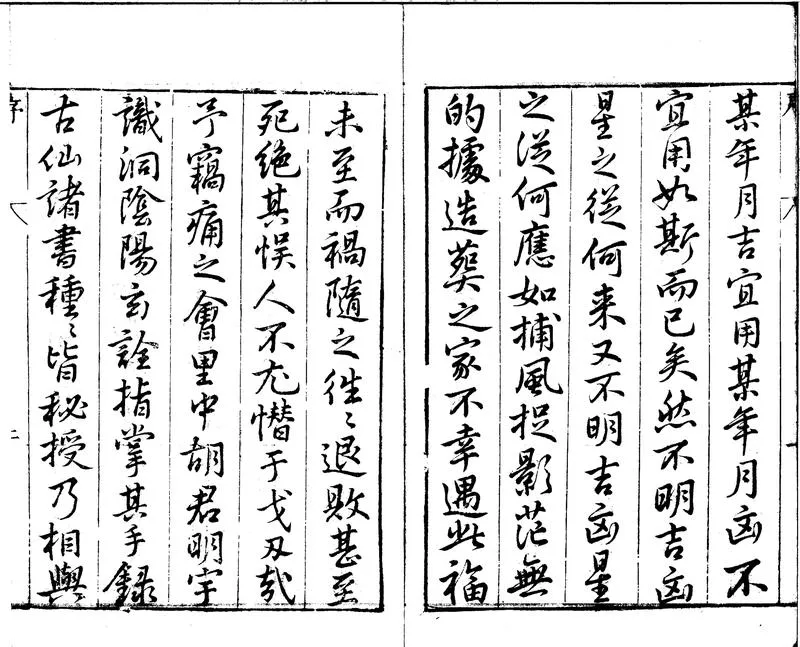 某年月吉宜用某年月凶不
宜用如斯而已矣然不明吉凶
星之從何来又不明吉凶星
之從何應如捕風捉影茫無
的據造葬之家不幸遇此福
未至而禍隨之徃〻退敗甚至
死絶其悮人不尤憯于戈刄哉
予竊痛之會里中胡君明宇
識洞陰陽玄詮指掌其手錄
古仙諸書種〻皆秘授乃相與
序